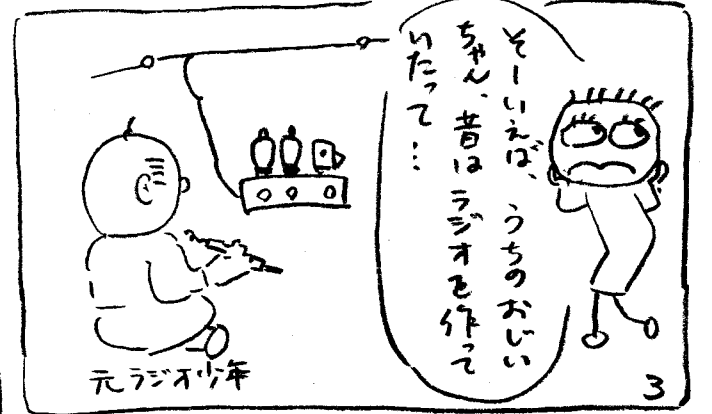 そーいえば、うちのおじい
ちゃん、昔はラジオを作って
いたって…
元ラジオ少年
3